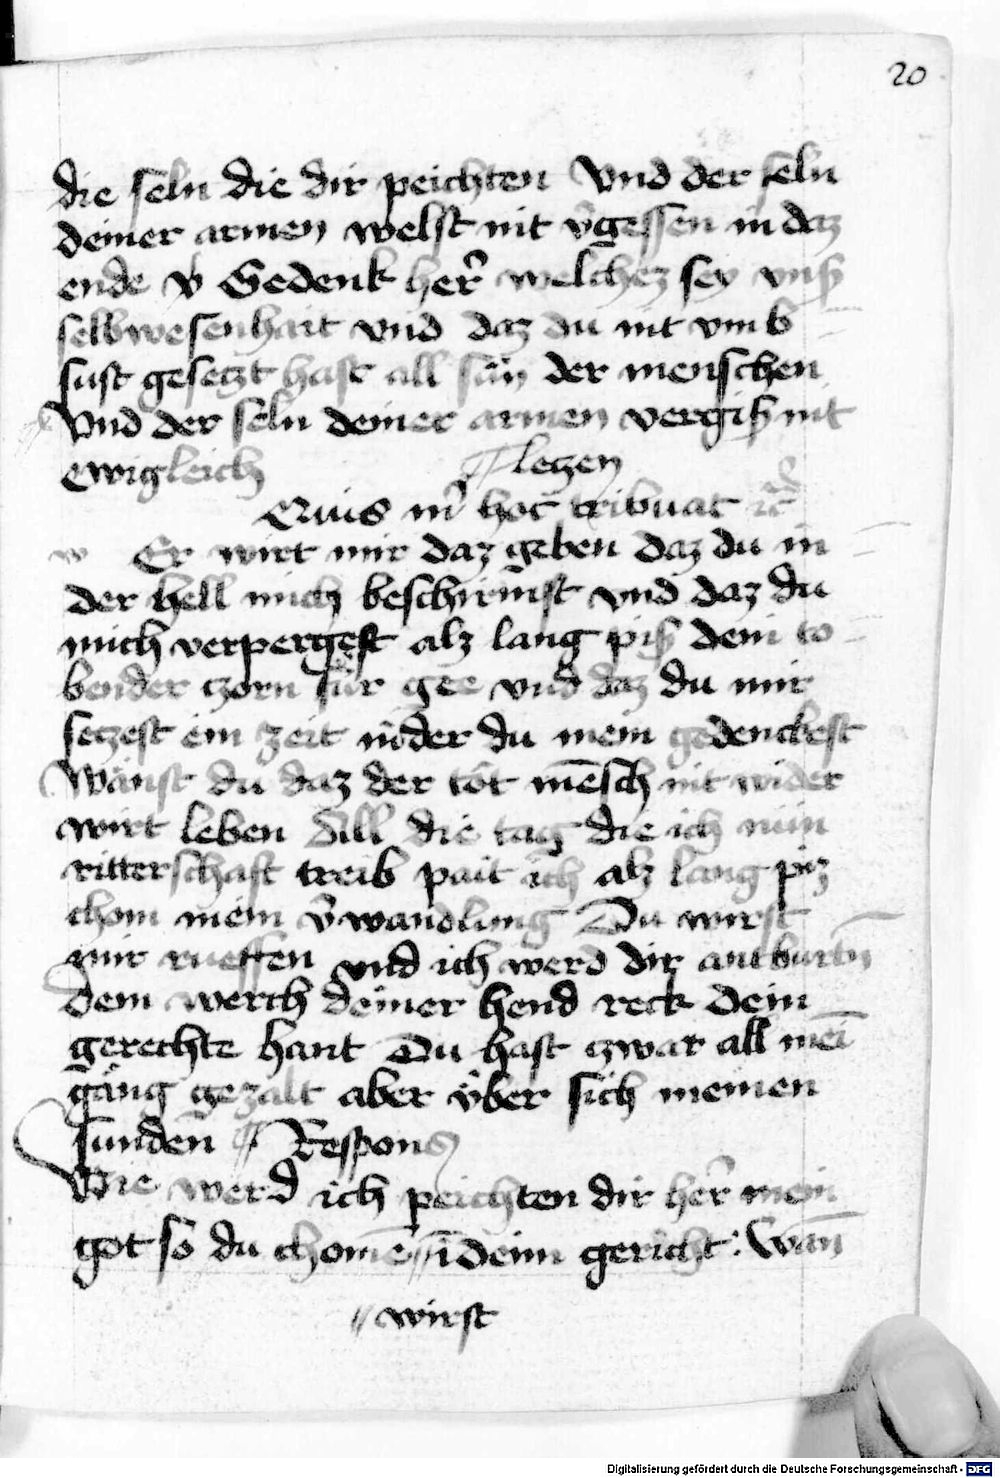 20
die seln die dir peichten Vnd der seln
deiner armen welst nit v̄gessen in daz
ende V̄ Gedenk her̄ welchez sey vnß
selbwesenhait vnd daz du nit vmb
sust gesetzt hast all sün der menschen
Vnd der seln deiner armen vergiß nit
ewigleich letzen
Quis m̄ hoc tribuat
Er wirt mir daz geben daz du in
der hell mich beschirmst vnd daz du
mich verpergest alz lang piß dein to
bender czorn für gee vnd daz du mir
setzest ein zeit in der du mein gedenckest
Wänst du daz der tot mēsch nit wider
wirt leben All die tag die ich nun
ritterschaft treib pait ich alz lang piz
chom mein v̄wandlung Du wirst
mir rueffen vnd ich werd dir antburtn̄
dem werch deiner hend reck dein
gerechte hant Du hast zwar all mei̅
gäng gezalt aber vber sich meinen
sunden Respons
Wie werd ich peichten dir her̄ mein
got so du chome wirst i̅ deim gericht : Wan̄